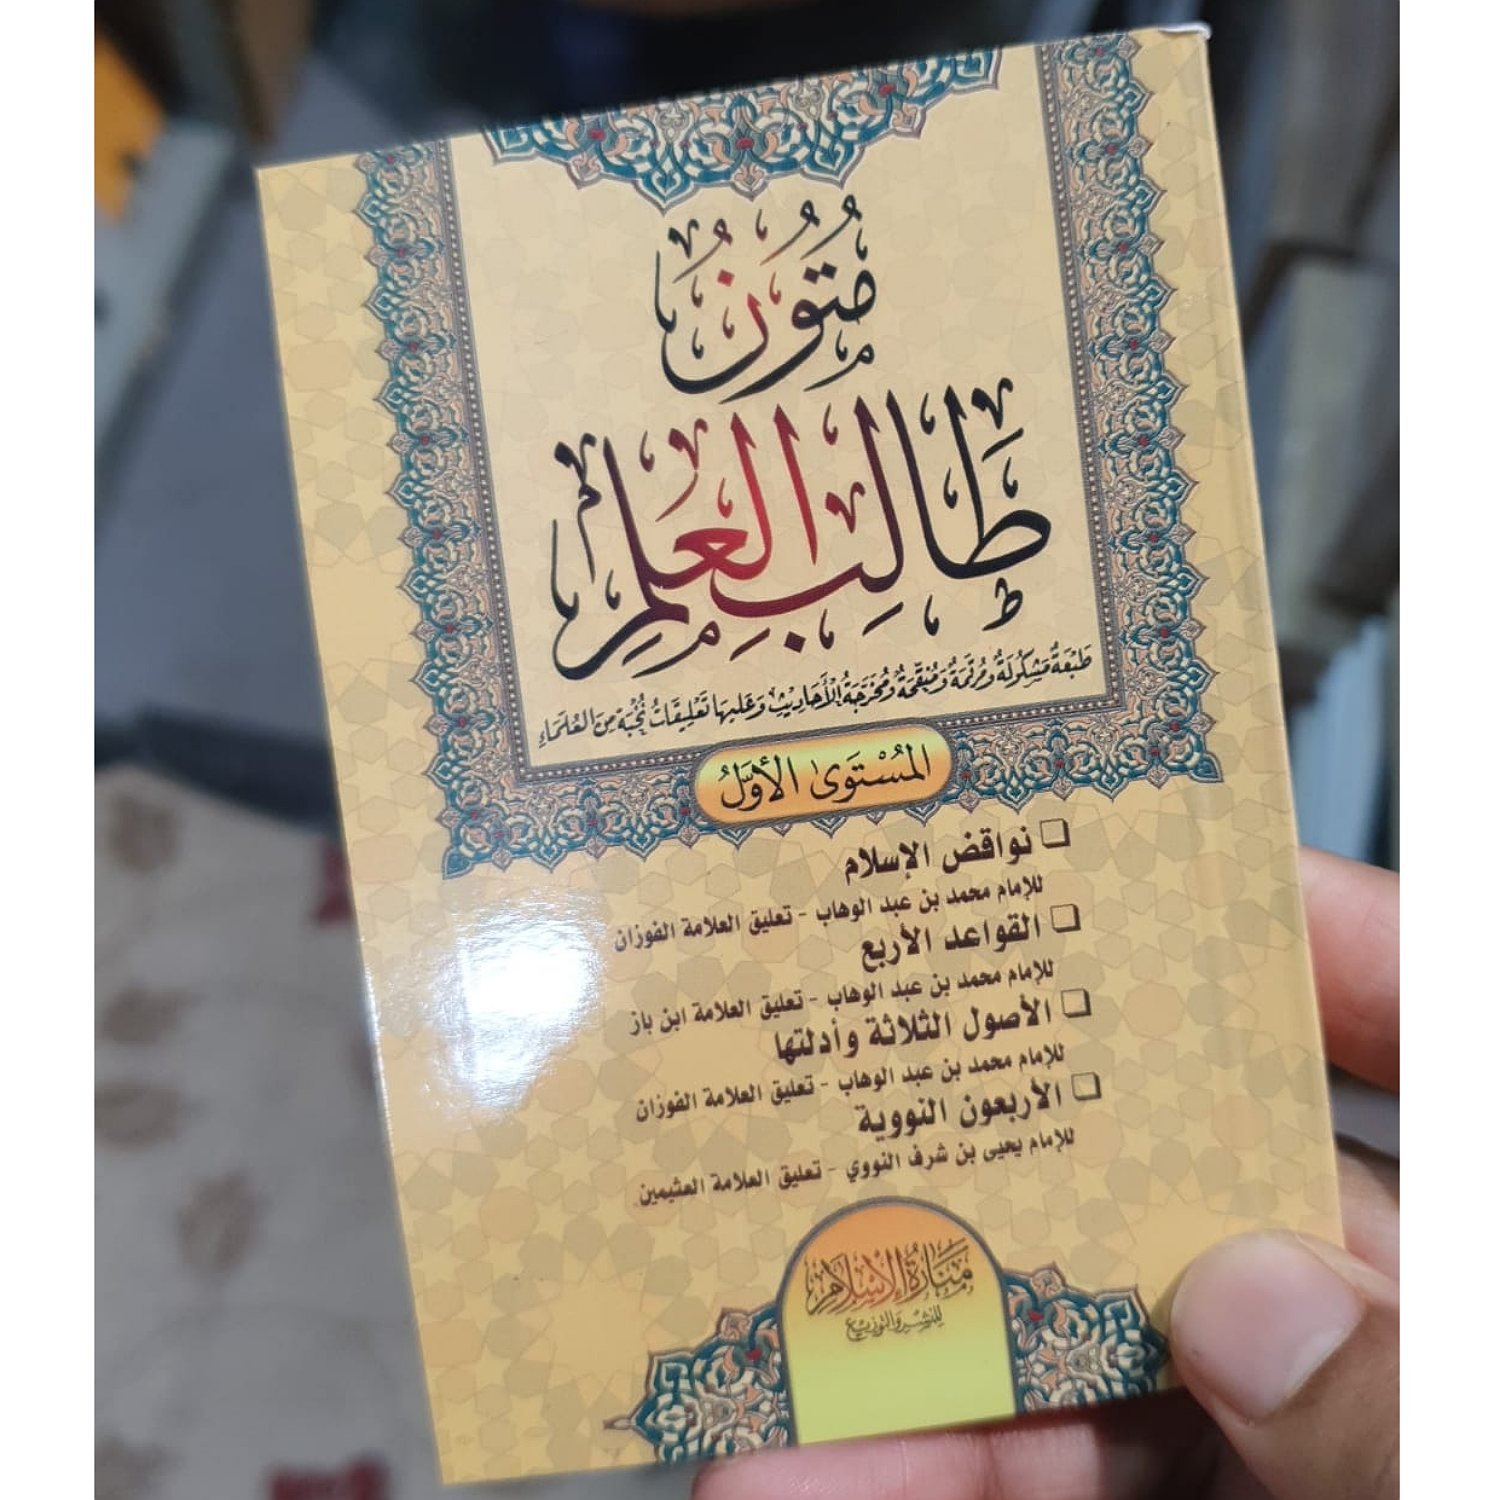 مُتُونُ
طَالِبِ العِلمِ
طَبْعَةٌ مَشْكُولَةٌ وَمُرَقَّمَةٌ وَمُنَقَّحَةٌ وَمُخَرَّجَةُ الْأَحَادِيثِ وَعَلَيهَا تَعْلِيقَاتُ نُخْبَةٍ مِنَ العُلَمَاءِ
المُسْتَوَى الأوَّلُ
نواقض الإسلام
للإمام محمد بن عبد الوهاب - تعليق العلامة الفوزان
القواعد الأربع
للإمام محمد بن عبد الوهاب - تعليق العلامة ابن باز
الأصول الثلاثة وأدلتها
للإمام محمد بن عبد الوهاب - تعليق العلامة الفوزان
الأربعون النووية
للإمام يحيى بن شرف النووي - تعليق العلامة العثيمين
مَنَارَةُ الإِسْلَامِ
للنشر والتوزيع